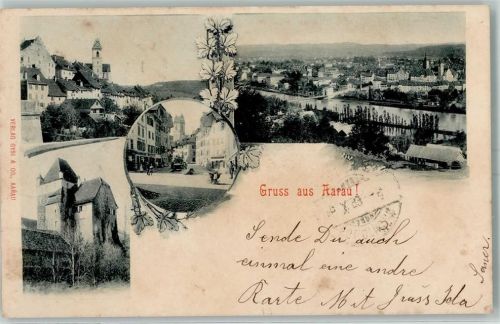 Gruss aus Aarau!
Sende Dir auch
einmal eine andre
Karte Mit Gruss Ida
VERLAG & CO., AARAU